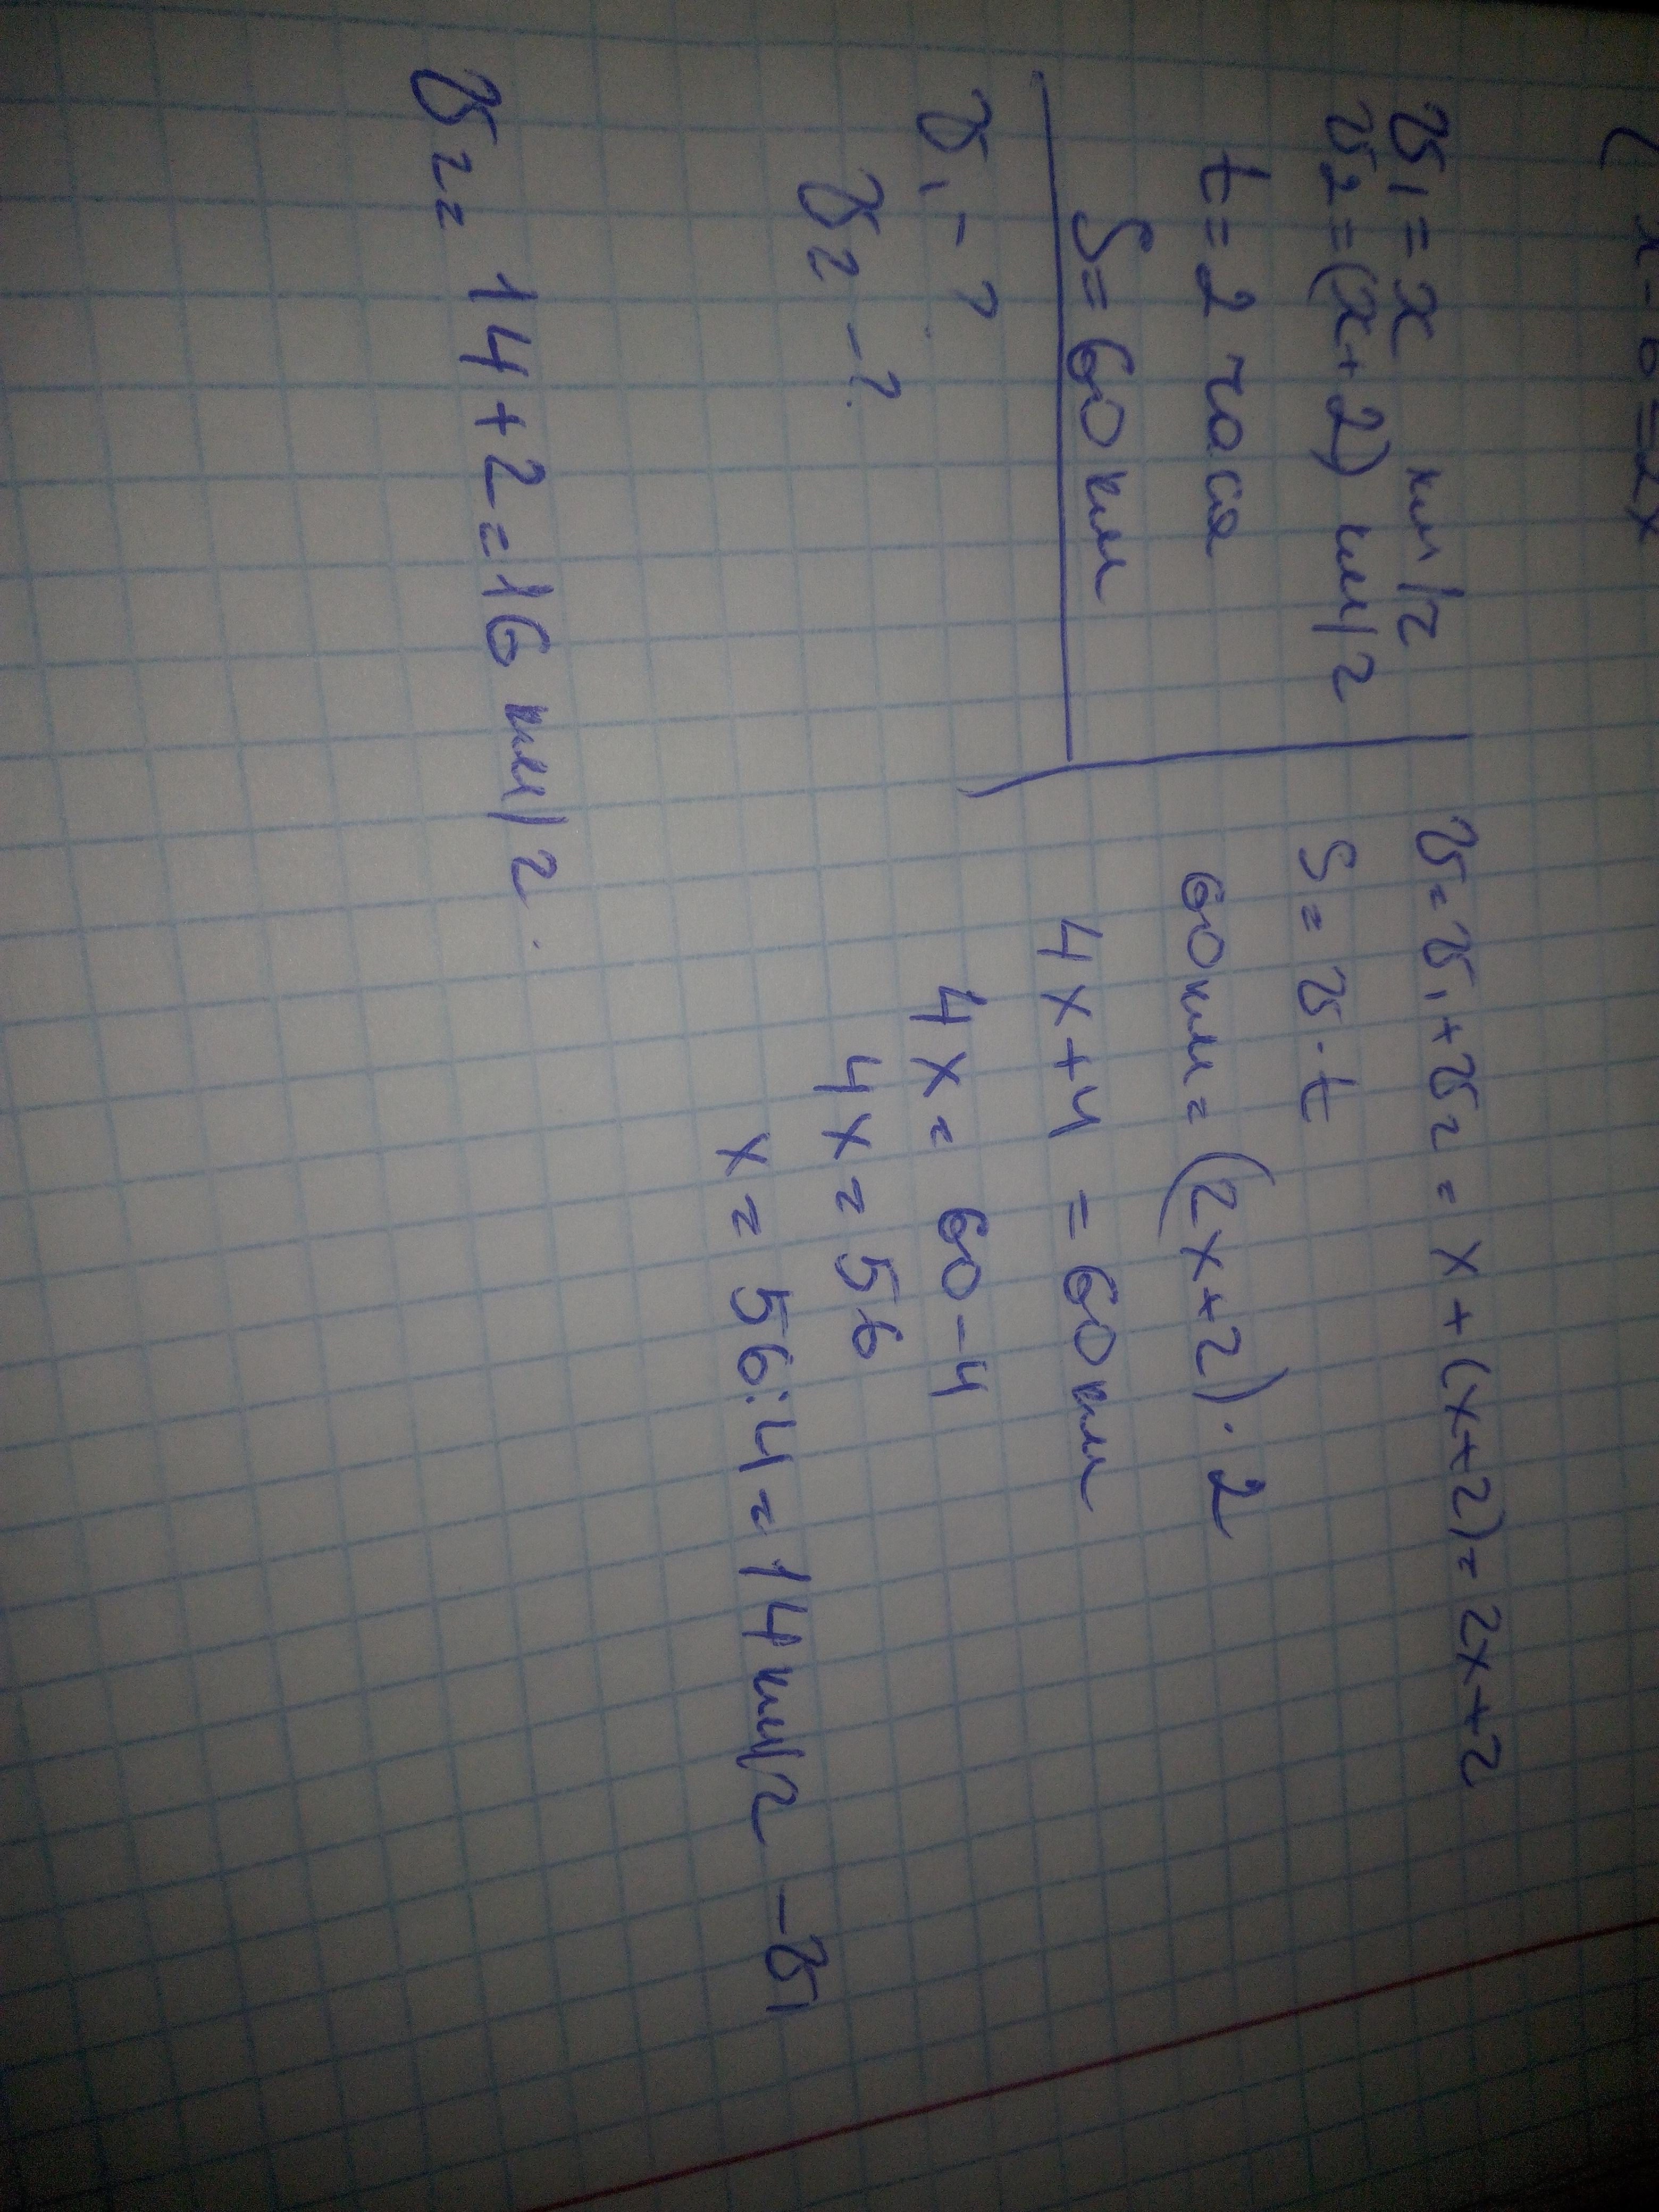 x - 6 = 2x
v₁ = x км/г
v₂ = (x+2) км/г
t = 2 часа
S = 60 км
v₁ - ?
v₂ - ?
v = v₁ + v₂ = x + (x+2) = 2x+2
S = v · t
60 км = (2x+2) · 2
4x+4 = 60 км
4x = 60-4
4x = 56
x = 56:4 = 14 км/г - v₁
v₂ = 14+2=16 км/г.